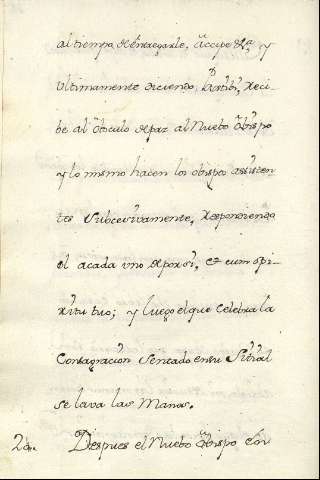 al tiempo de entregarle, Accipe &ca. y
ultimamente diciendo, Reci-
be al Osculo de paz al Nuebo Obispo
y lo mismo hacen los obispos assisten-
tes Subcecivamente, respondiendo
el acada uno de por si, et cum spi-
ritu tuo; y luego el que Celebra la
Consagracion Sentado en su Sitial
se lava las Manos.
Despues el Nuebo Obispo con